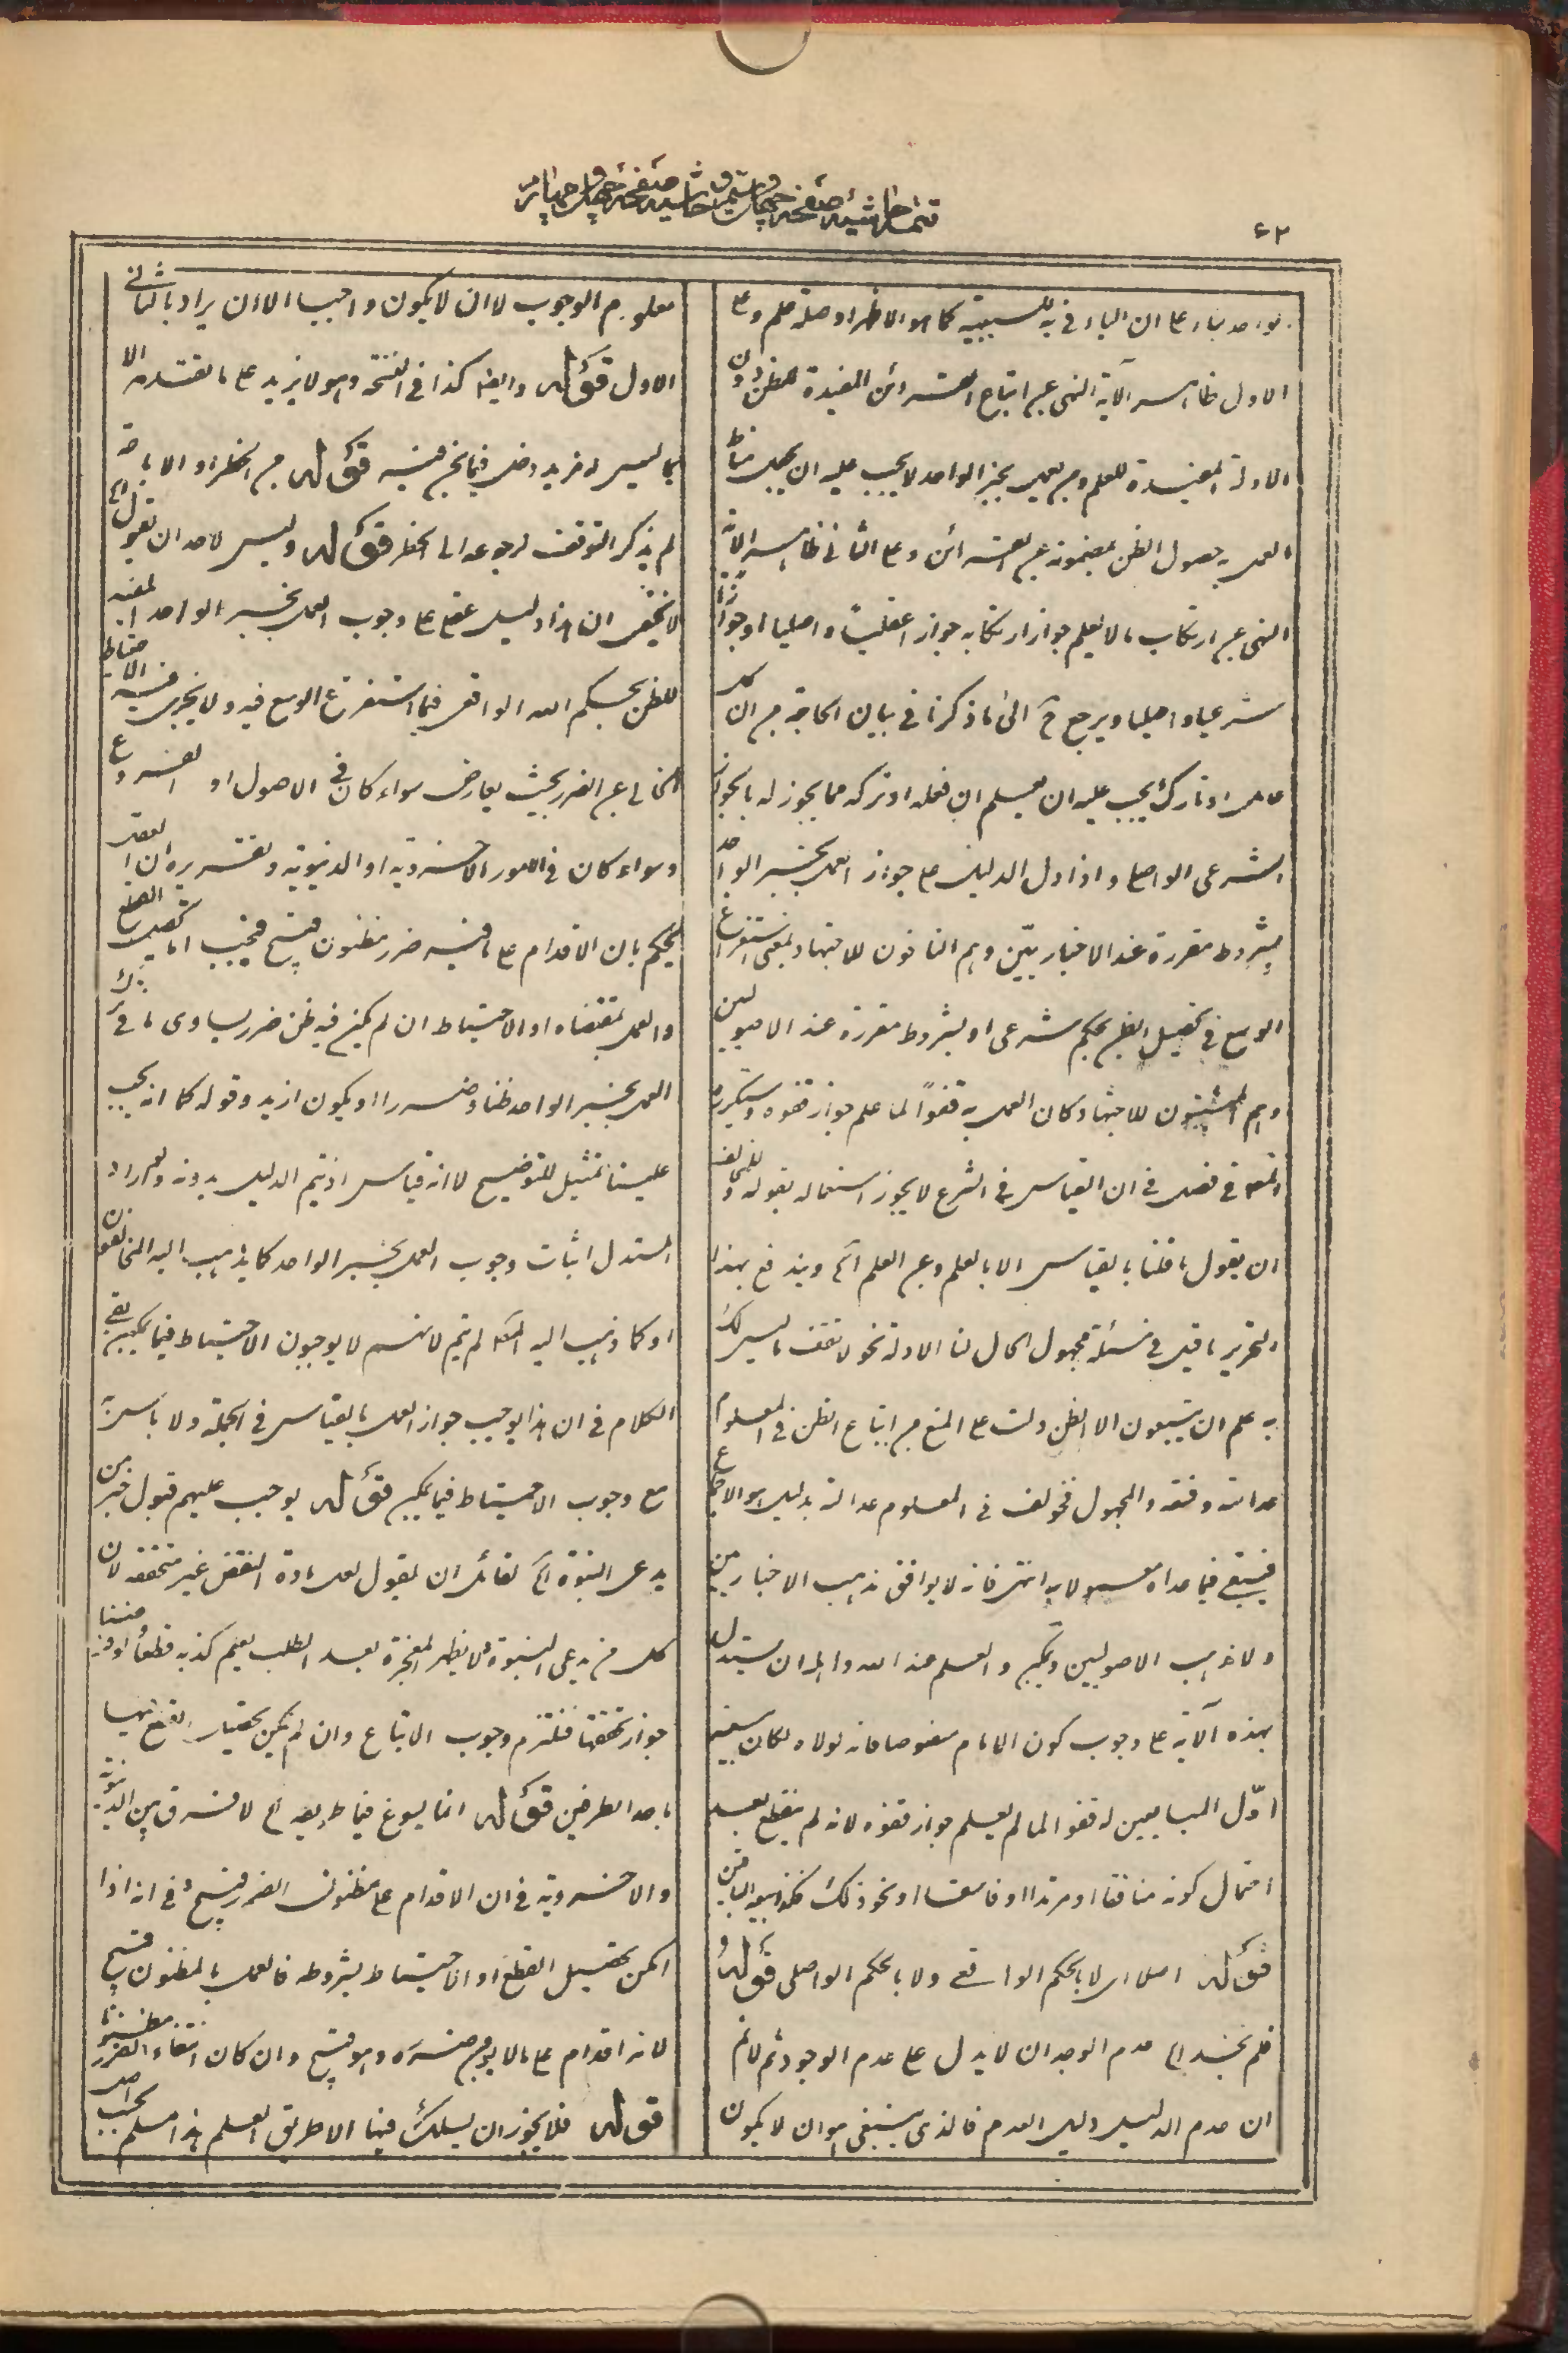 ٤٢
الواحد بناء على ان الباء فى به للسببية كما هو الاظهر او صلة علم وعلى
الاول ظاهر الآية النهى عن اتباع القرائن المفيدة للظن دون
الادلة المفيدة للعلم ومن يعمل بخبر الواحد لا يجب عليه ان يجعل مناط
العمل به حصول الظن بمضمونه عن القرائن وعلى الثانى ظاهر الآية
النهى عن ارتكاب ما لا يعلم جواز ارتكابه جوازا عقليا واصليا او جوازا
شرعيا واصليا ويرجع ح الى ما ذكرنا فى بيان الحاجة من ان كل
عامل او تارك يجب عليه ان يعلم ان فعله او تركه مما يجوز له بالجواز
الشرعى الواصلى واذا دل الدليل على جواز العمل بخبر الواحد
بشروط مقررة عند الاخباريين وهم النافون للاجتهاد بمعنى استفراغ
الوسع فى تحصيل الظن بحكم شرعى او بشروط مقررة عند الاصوليين
وهم المثبتون للاجتهاد كان العمل به قفوا لما علم جواز قفوه وسيذكره
المص فى فصل فى ان القياس فى الشرع لا يجوز استعماله بقوله وللمخالف
ان يقول ما قلنا بالقياس الا بالعلم وعن العلم الخ ويندفع بهذا
التحرير ما قيل فى مسئلة مجهول الحال لنا الادلة نحو لا تقف ما ليس لك
به علم ان يتبعون الا الظن دلت على المنع من اتباع الظن فى المعلوم
عدالته وفسقه والمجهول فخولف فى المعلوم عدالته بدليل هو الاجماع
فيبقى فيما عداه معمولا به انتهى فانه لا يوافق مذهب الاخباريين
ولا مذهب الاصوليين ويمكن والعلم عند الله واهله ان يستدل
بهذه الآية على وجوب كون الامام منصوصا فانه لولاه لكان سعى
اول المبايعين له قفوا لما لم يعلم جواز قفوه لانه لم ينقطع بعد
احتمال كونه منافقا او مرتدا او فاسقا او نحو ذلك فكذا سعى الباقين
قوله اصلا اى لا بالحكم الواقعى ولا بالحكم الواصلى قوله و
فلم نجد الخ عدم الوجدان لا يدل على عدم الوجود ثم لا نم
ان عدم الدليل دليل العدم فالذى ينبغى هو ان لا يكون
معلوم الوجوب لا ان لا يكون واجبا الا ان يراد بالثانى
الاول قوله وايضا كذا فى النسخة وهو لا يزيد على ما تقدمه الا
بما ليس له مزيد دخل فيما نحن فيه قوله من الحظر او الاباحة
لم يذكر التوقف لرجوعه الى الحظر قوله وليس لاحد ان يقول الخ
لا يخفى ان هذا دليل عقلى على وجوب العمل بخبر الواحد المفيد
للظن بحكم الله الواقعى فيما استفرغ الوسع فيه ولا يجرى فيه الاحتياط
الخالى عن الضرر بحيث يعارض سواء كان فى الاصول او الفروع
وسواء كان فى الامور الاخروية او الدنيوية وتقريره ان العقل
يحكم بان الاقدام على ما فيه ضرر مظنون قبيح فيجب اما تحصيل القطع
والعمل بمقتضاه او الاحتياط ان لم يكن فيه ظن ضرر يساوى ما فى ترك
العمل بخبر الواحد ظنا وضررا او يكون ازيد وقوله كما انه يجب
علينا تمثيل للتوضيح لا انه قياس اذ يتم الدليل بدونه ولو اراد
المستدل اثبات وجوب العمل بخبر الواحد كما يذهب اليه المخالفون
او كما ذهب اليه المص لم يتم لانهم لا يوجبون الاحتياط فيما يمكن بقى
الكلام فى ان هذا يوجب جواز العمل بالقياس فى الجملة ولا باس به
مع وجوب الاحتياط فيما يمكن قوله يوجب عليهم قبول خبر من
يدعى النبوة الخ لقائل ان يقول لعل مادة النقض غير متحققة لان
كل من يدعى النبوة ولا يظهر المعجزة بعد الطلب يعلم كذبه قطعا ولو فرضنا
جواز تحققها فنلتزم وجوب الاتباع وان لم يكن تحصيل القطع فيها
باحد الطرفين قوله انما يسوغ فيما طريقه الخ لا فرق بين الدنيوية
والاخروية فى ان الاقدام على مظنون الضرر قبيح وفى انه اذا
امكن تحصيل القطع او الاحتياط بشروطه فالعمل بالمظنون قبيح
لانه اقدام على ما لا يؤمن ضرره وهو قبيح وان كان انتفاء الضرر مظنونا
قوله فلا يجوز ان يسلك فيها الا طريق العلم هذا مسلم بحسب اصل